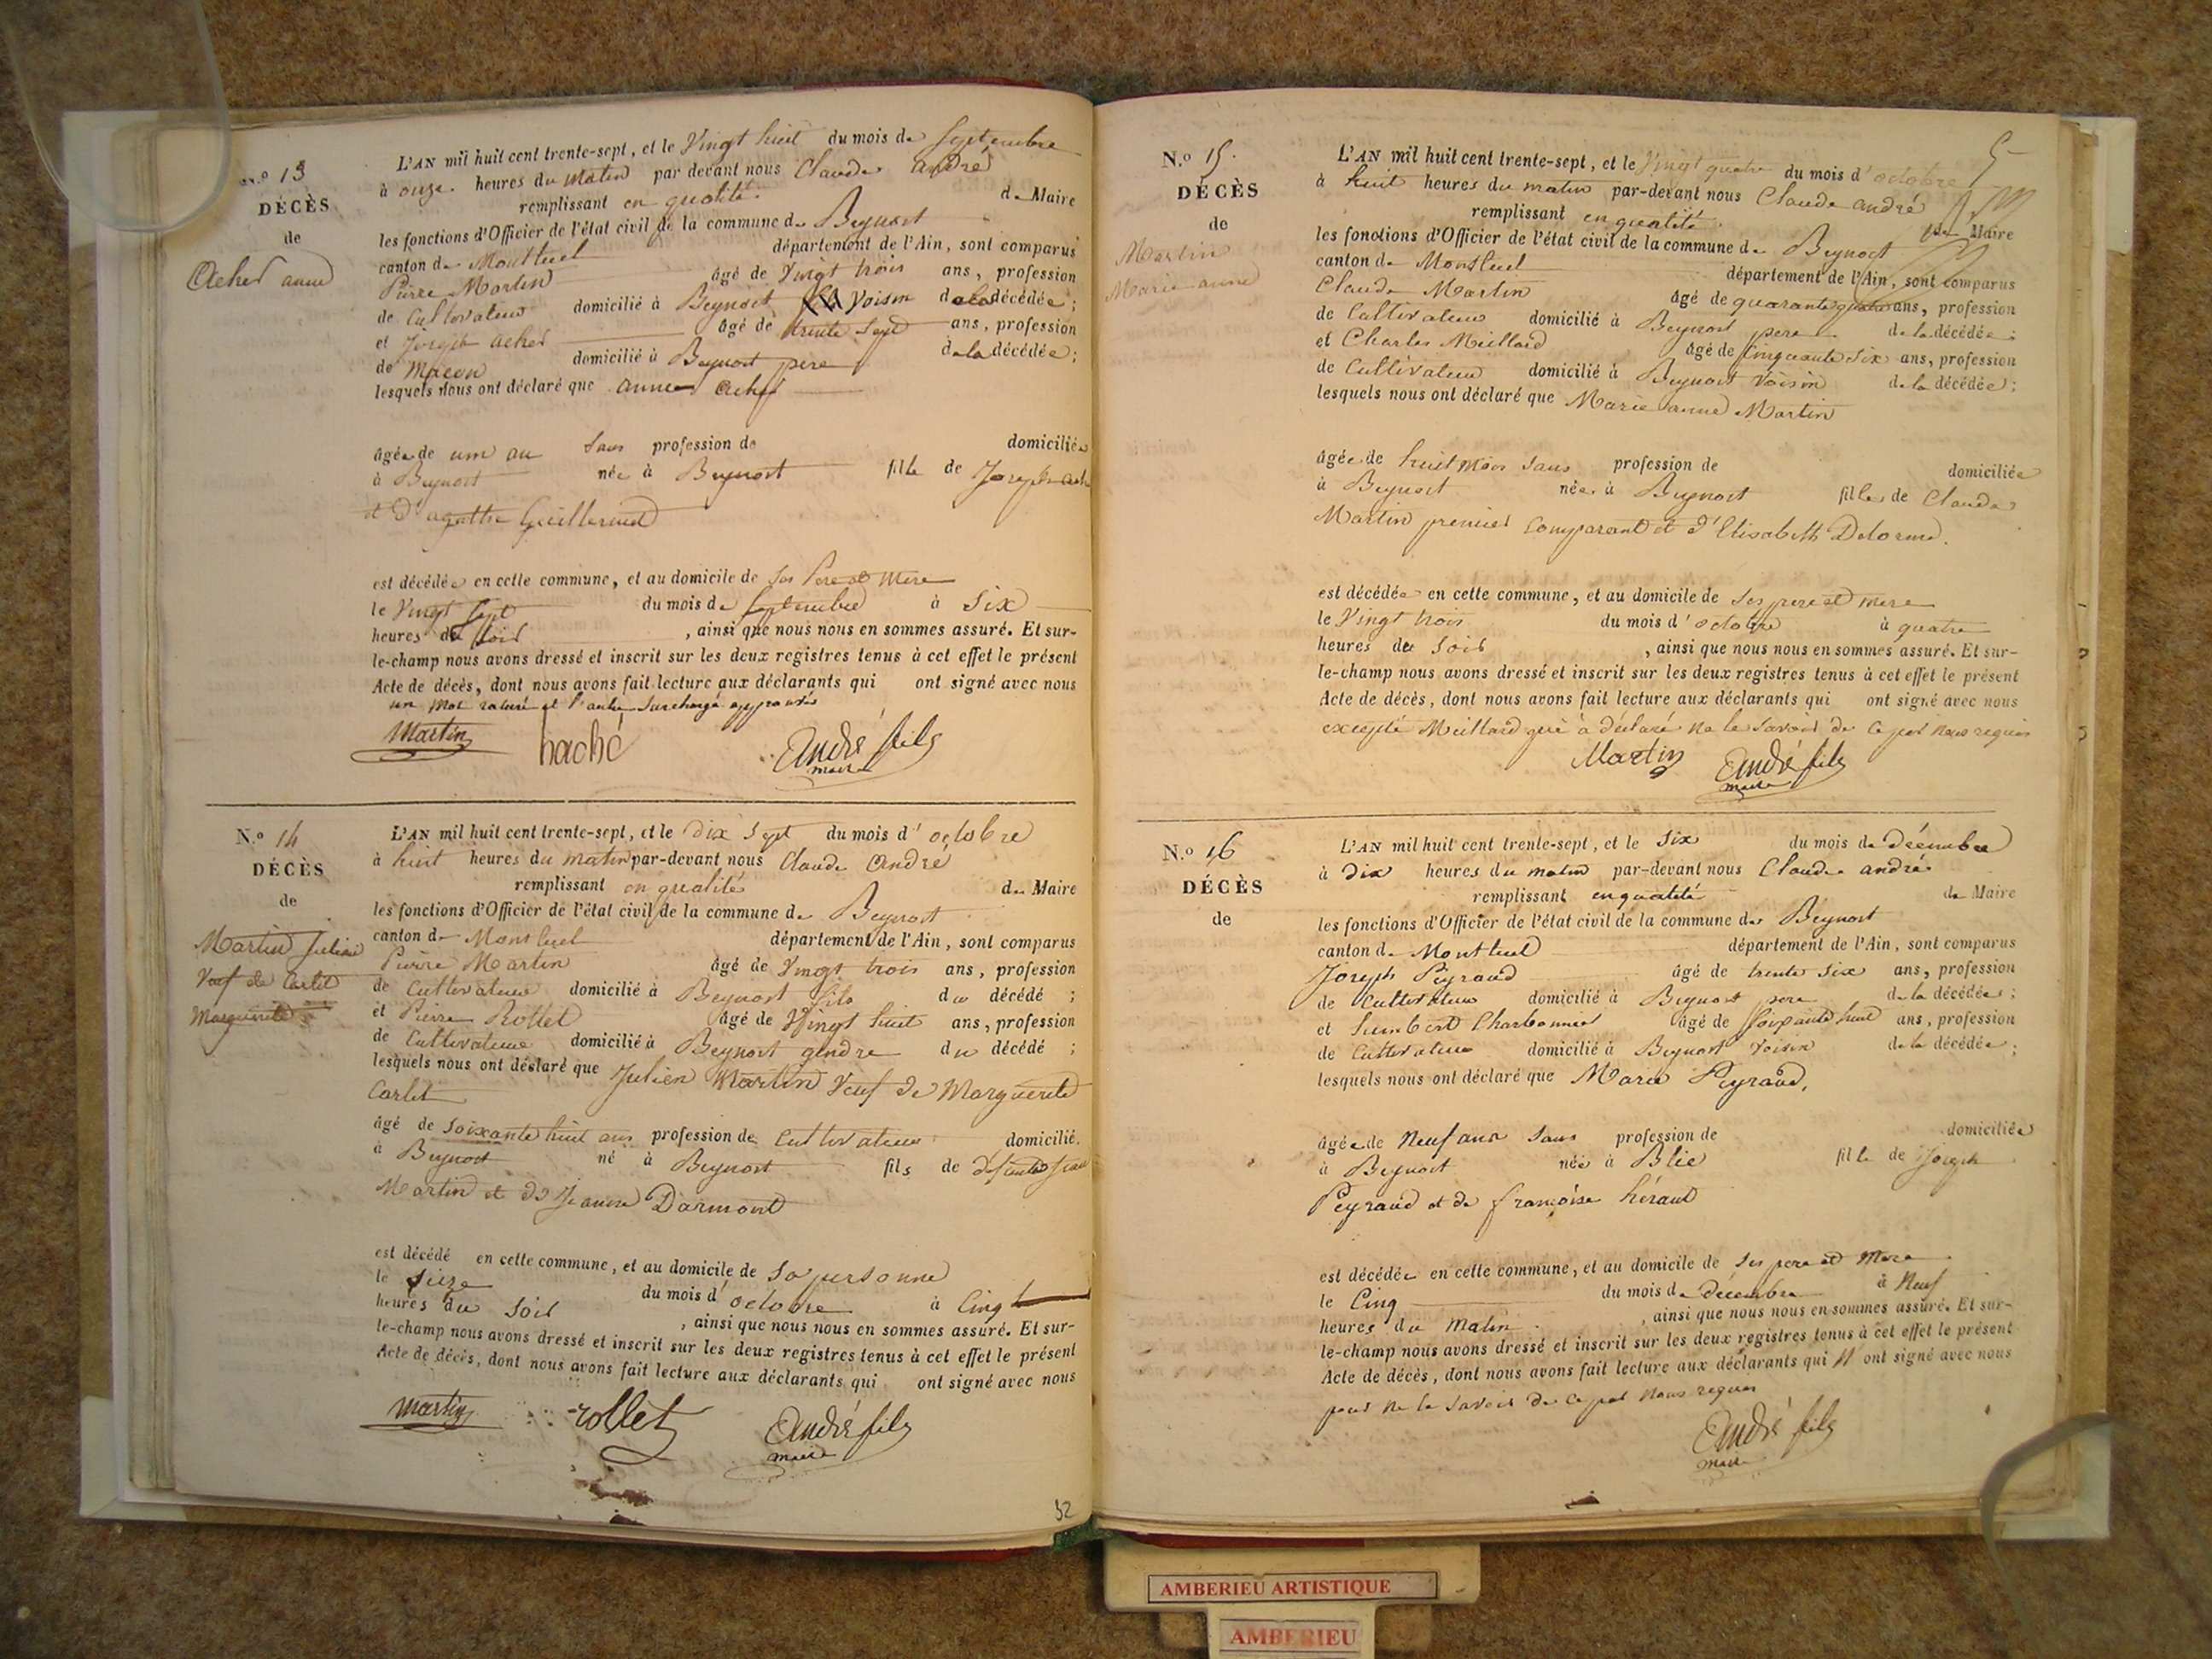 N.o 13
DÉCÈS
de
Acher anne
L'AN mil huit cent trente-sept, et le Vingt huit du mois de Septembre
à onze heures du matin par devant nous Claude andré
remplissant en qualité de Maire
les fonctions d'Officier de l'état civil de la commune de Beynost
canton de Montluel département de l'Ain, sont comparus
Pierre Martin âgé de Vingt trois ans, profession
de Cultivateur domicilié à Beynost voisin de la décédée;
et Joseph acher âgé de trente sept ans, profession
de Macon domicilié à Beynost pere de la décédée;
lesquels nous ont déclaré que anne acher
âgée de un an Sans profession de domiciliée
à Beynost née à Beynost fille de Joseph
et d'agathe Guillermet
est décédée en cette commune, et au domicile de Ses Pere et Mere
le Vingt Sept du mois de Septembre à Six
heures du Soir, ainsi que nous nous en sommes assuré. Et sur-
le-champ nous avons dressé et inscrit sur les deux registres tenus à cet effet le présent
Acte de décès, dont nous avons fait lecture aux déclarants qui ont signé avec nous
un mot raturé et l'autre Surchargé approuvés
Martin haché André fils
maire
N.o 14
DÉCÈS
de
Martin Julien
Veuf de Carlet
Marguerite
L'AN mil huit cent trente-sept, et le Dix Sept du mois d'octobre
à huit heures du matin par-devant nous Claude André
remplissant en qualité de Maire
les fonctions d'Officier de l'état civil de la commune de Beynost
canton de Montluel département de l'Ain, sont comparus
Pierre Martin âgé de Vingt trois ans, profession
de Cultivateur domicilié à Beynost fils du décédé;
et Pierre Rollet âgé de Vingt huit ans, profession
de Cultivateur domicilié à Beynost gendre du décédé;
lesquels nous ont déclaré que Julien Martin Veuf de Marguerite
Carlet
âgé de Soixante huit ans profession de Cultivateur domicilié
à Beynost né à Beynost fils de défunts Jean
Martin et de Jeanne Darmont
est décédé en cette commune, et au domicile de Sa personne
le Seize du mois d'octobre à Cinq
heures du Soir, ainsi que nous nous en sommes assuré. Et sur-
le-champ nous avons dressé et inscrit sur les deux registres tenus à cet effet le présent
Acte de décès, dont nous avons fait lecture aux déclarants qui ont signé avec nous
Martin rollet André fils
maire
52
N.o 15.
DÉCÈS
de
Martin
Marie anne
L'AN mil huit cent trente-sept, et le Vingt quatre du mois d'octobre
à huit heures du matin par-devant nous Claude andré
remplissant en qualité de Maire
les fonctions d'Officier de l'état civil de la commune de Beynost
canton de Montluel département de l'Ain, sont comparus
Claude Martin âgé de quarante quatre ans, profession
de Cultivateur domicilié à Beynost pere de la décédée;
et Charles Meillard âgé de Cinquante Six ans, profession
de Cultivateur domicilié à Beynost Voisin de la décédée;
lesquels nous ont déclaré que Marie anne Martin
âgée de huit mois Sans profession de domiciliée
à Beynost née à Beynost fille de Claude
Martin premier Comparant et d'Elisabeth Delorme.
est décédée en cette commune, et au domicile de Ses pere et mere
le Vingt trois du mois d'octobre à quatre
heures du Soir, ainsi que nous nous en sommes assuré. Et sur-
le-champ nous avons dressé et inscrit sur les deux registres tenus à cet effet le présent
Acte de décès, dont nous avons fait lecture aux déclarants qui ont signé avec nous
excepté Meillard qui à déclaré ne le savoir de ce par nous requis
Martin André fils
maire
N.o 16
DÉCÈS
de
L'AN mil huit cent trente-sept, et le Six du mois de Décembre
à Dix heures du matin par-devant nous Claude andré
remplissant en qualité de Maire
les fonctions d'Officier de l'état civil de la commune de Beynost
canton de Montluel département de l'Ain, sont comparus
Joseph Peyraud âgé de trente Six ans, profession
de Cultivateur domicilié à Beynost pere de la décédée;
et humbert Charbonnier âgé de Soixante huit ans, profession
de Cultivateur domicilié à Beynost Voisin de la décédée;
lesquels nous ont déclaré que Marie Peyraud,
âgée de Neuf ans Sans profession de domiciliée
à Beynost née à Blie fille de Joseph
Peyraud et de françoise héraut
est décédée en cette commune, et au domicile de Ses pere et Mere
le Cinq du mois de Décembre à Neuf
heures du Matin, ainsi que nous nous en sommes assuré. Et sur-
le-champ nous avons dressé et inscrit sur les deux registres tenus à cet effet le présent
Acte de décès, dont nous avons fait lecture aux déclarants qui N'ont signé avec nous
pour ne le Savoir de ce par nous requis
André fils
maire
AMBERIEU ARTISTIQUE
AMBERIEU